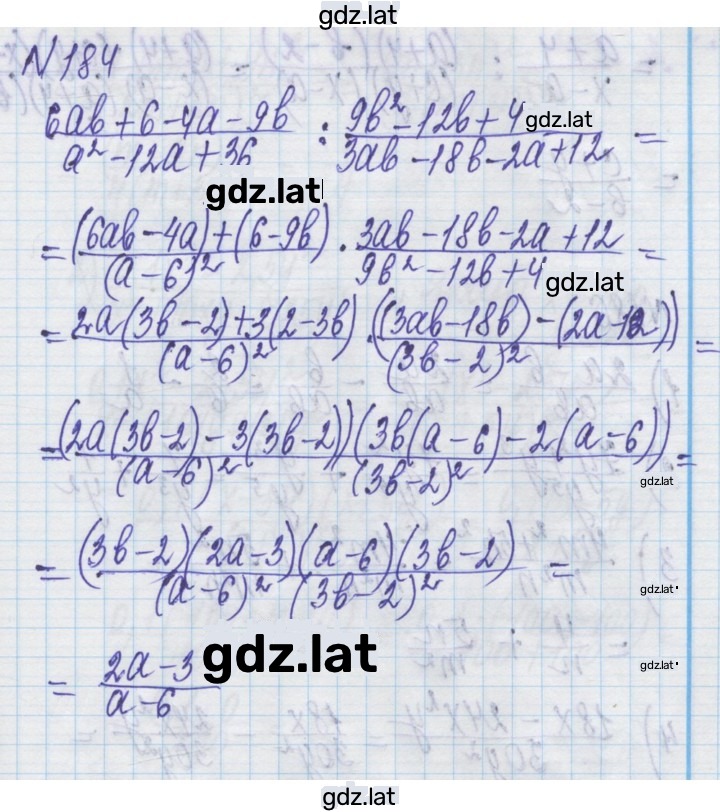 gdz.lat
N 184
(6ab + 6 - 4a - 9b)/(a² - 12a + 36) : (9b² - 12b + 4)/(3ab - 18b - 2a + 12) =
gdz.lat
gdz.lat
= ((6ab - 4a) + (6 - 9b))/((a - 6)²) · (3ab - 18b - 2a + 12)/(9b² - 12b + 4) =
gdz.lat
= (2a(3b - 2) + 3(2 - 3b))/((a - 6)²) · ((3ab - 18b) - (2a - 12))/((3b - 2)²) =
= ((2a(3b - 2) - 3(3b - 2))(3b(a - 6) - 2(a - 6)))/((a - 6)² (3b - 2)²) =
gdz.lat
= ((3b - 2)(2a - 3)(a - 6)(3b - 2))/((a - 6)² (3b - 2)²) =
gdz.lat
= (2a - 3)/(a - 6)
gdz.lat
gdz.lat
gdz.lat